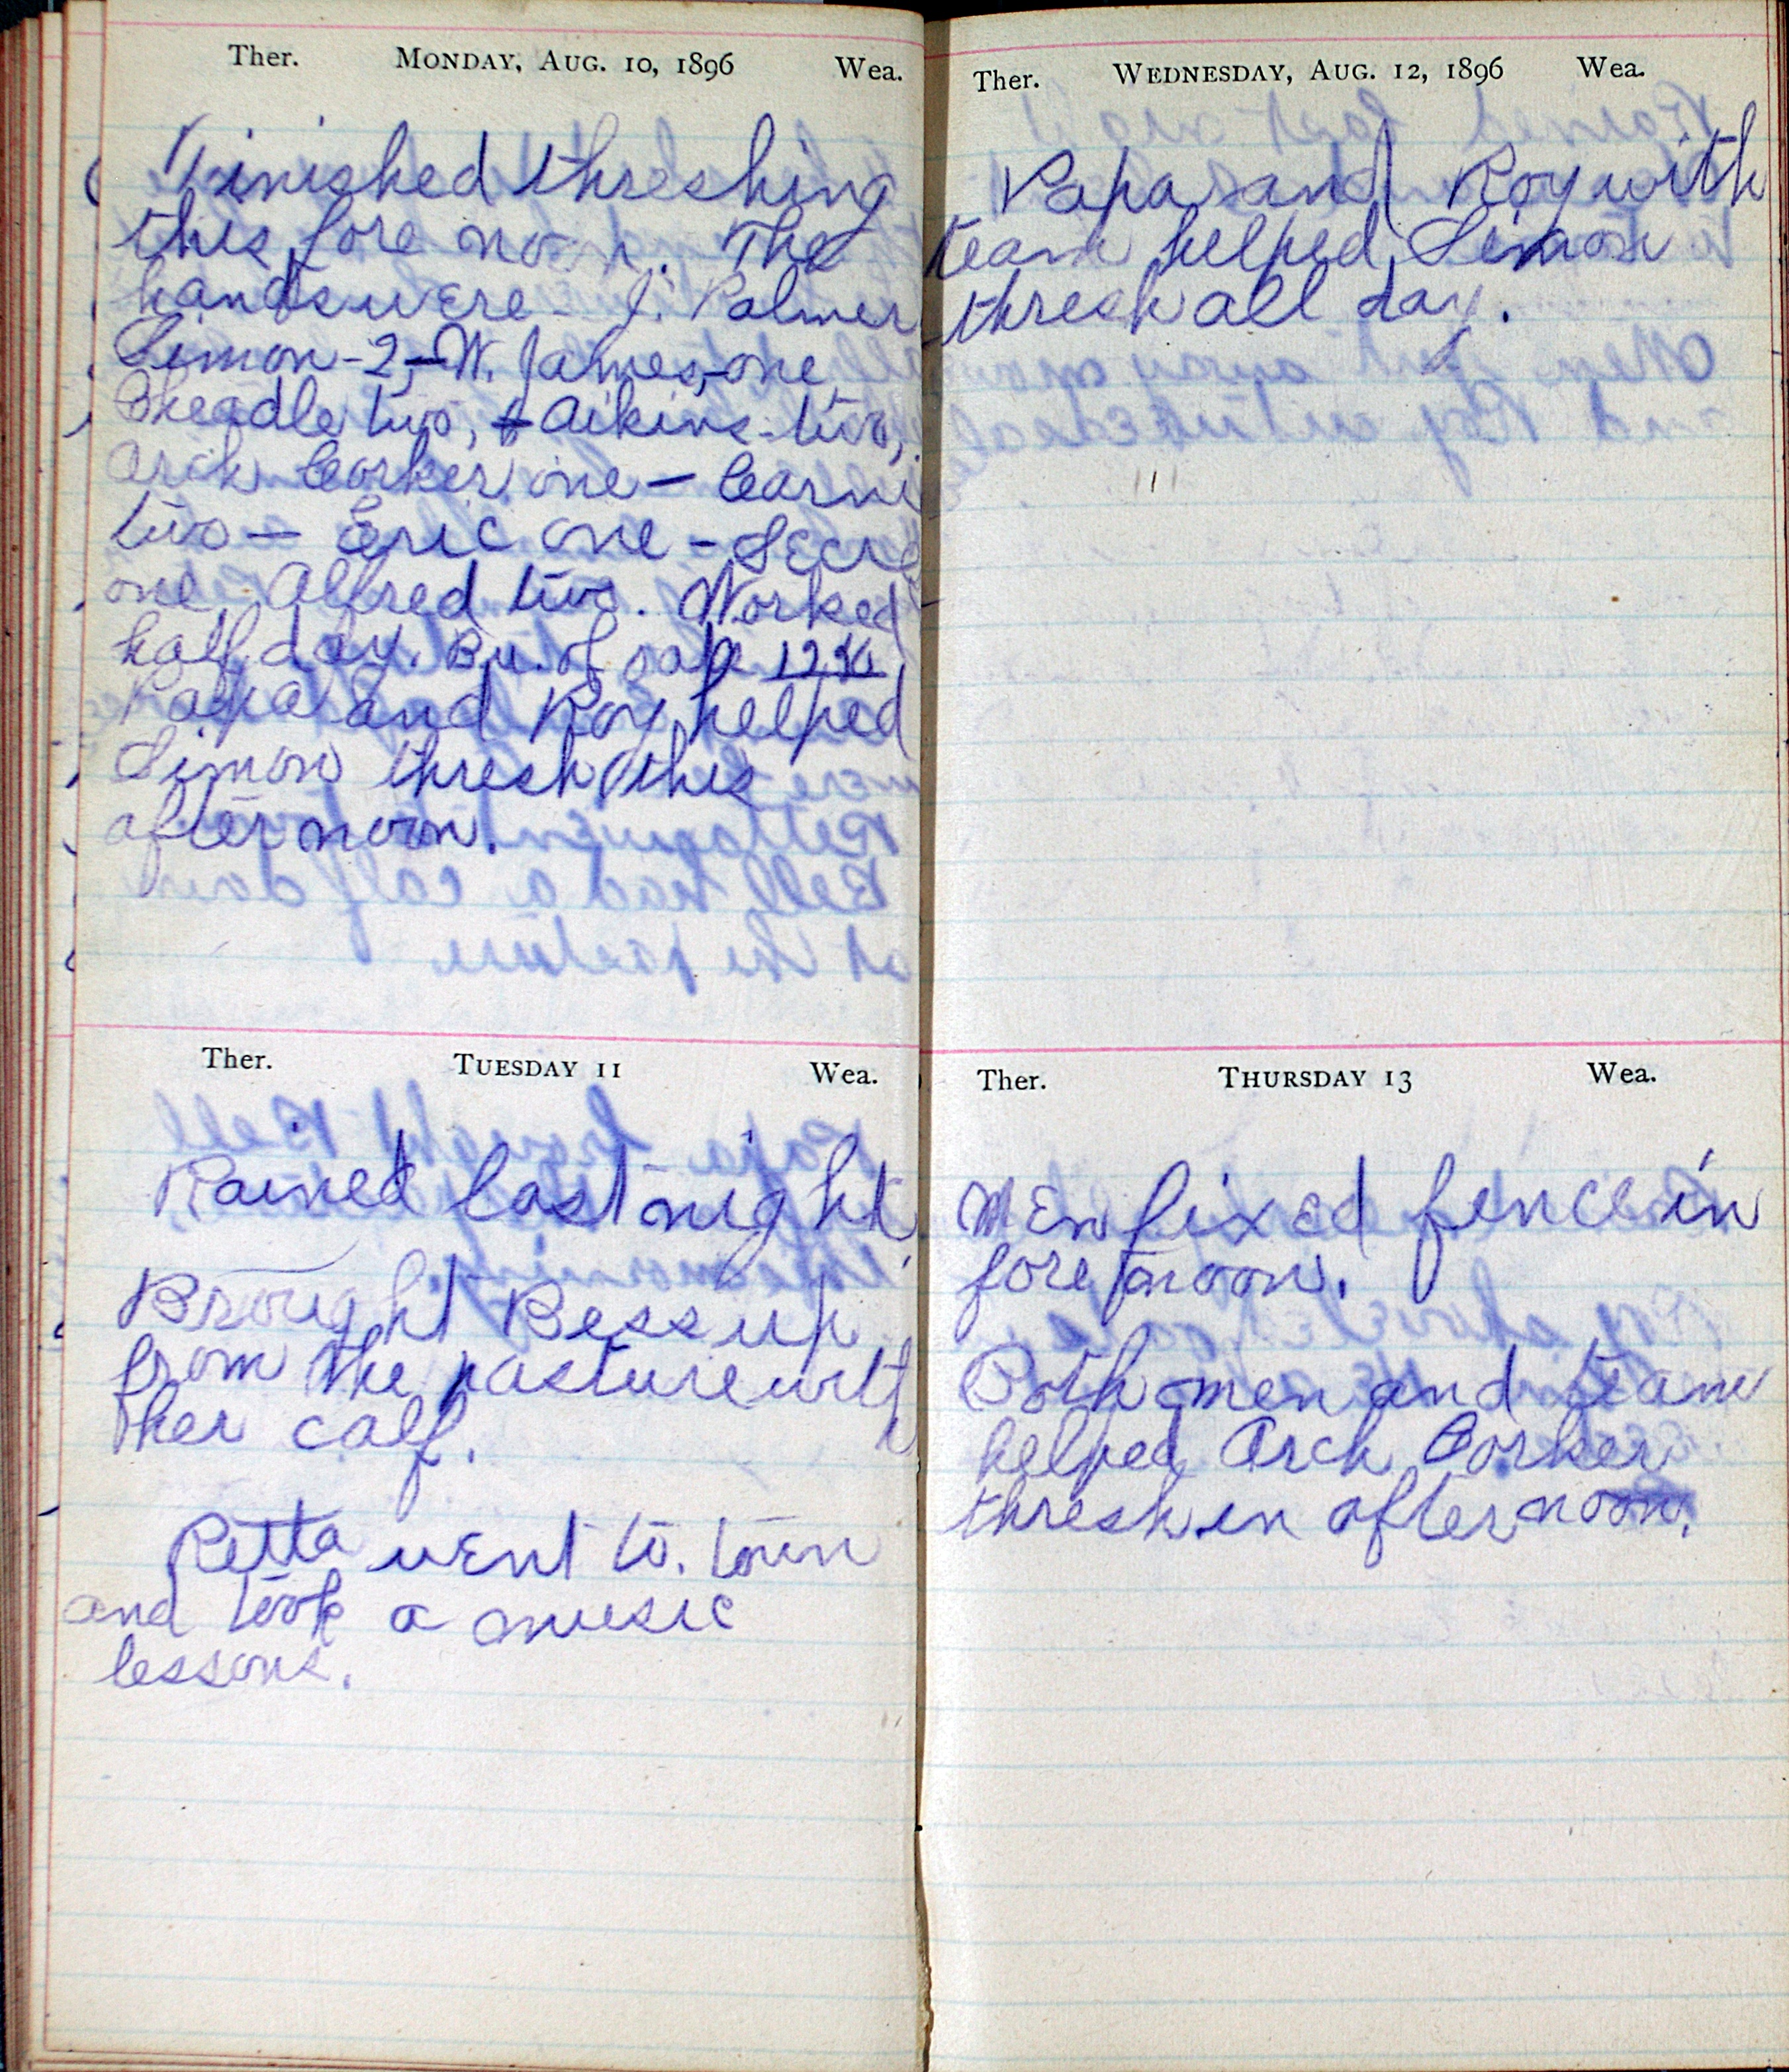 Ther. Monday, Aug. 10, 1896 Wea.
Finished threshing
this fore noon. The
hands were - J. Palmer
Simon - 2, - W. James, - one,
Cheadle two, + Aikins - two,
Arch Corker one - Carni
two - Eric one -
one Alfred two. Worked
half day. Bu. of oats
Papa and Roy helped
Simon thresh this
after noon.
Ther. Tuesday 11 Wea.
Rained last night.
Brought Bess up
from the pasture with
her calf.
Retta went to. town
and took a music
lessons.
Ther. Wednesday, Aug. 12, 1896 Wea.
Papa and Roy with
team helped Simon
thresh all day.
Ther. Thursday 13 Wea.
Men fixed fence in
fore noon.
Both men and team
helped Arch Corker
thresh in after noon.